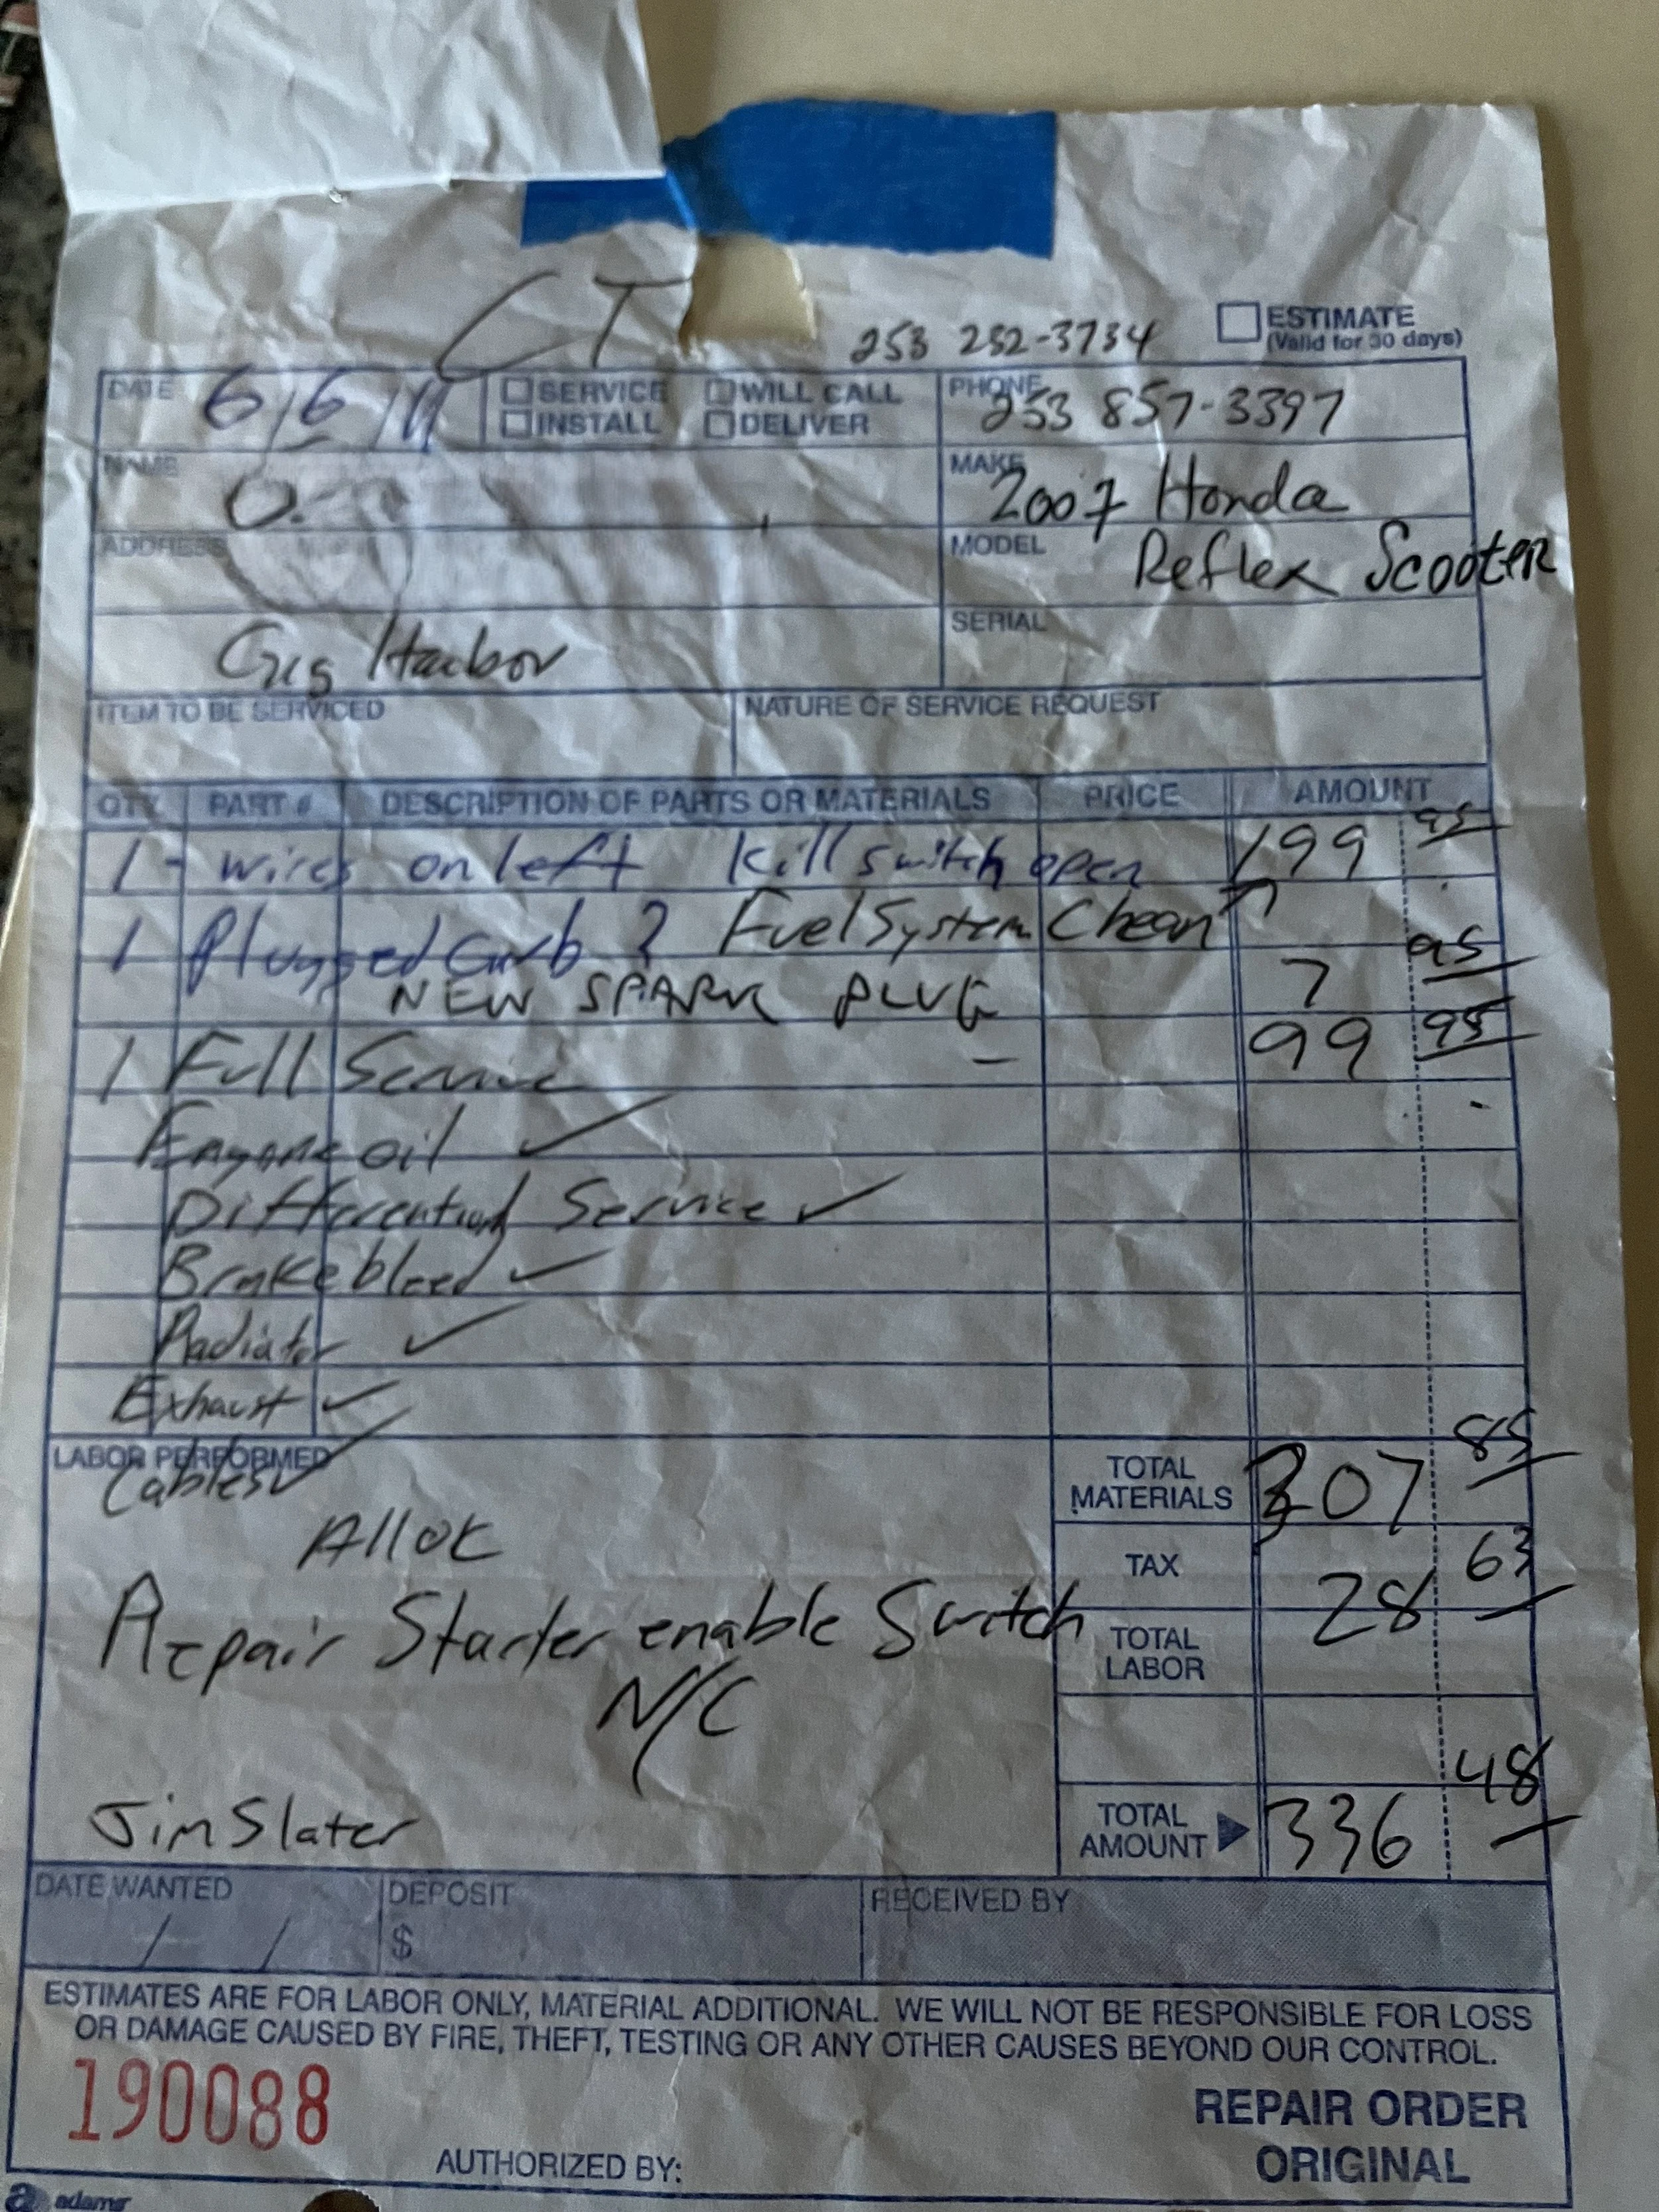 CT
253 252-3734
ESTIMATE
(Valid for 30 days)
DATE 6/6/11
SERVICE WILL CALL
INSTALL DELIVER
PHONE 253 857-3397
NAME
MAKE 2007 Honda
ADDRESS
MODEL Reflex Scooter
Gig Harbor
SERIAL
ITEM TO BE SERVICED NATURE OF SERVICE REQUEST
QTY. PART # DESCRIPTION OF PARTS OR MATERIALS PRICE AMOUNT
1 - wires on left Kill switch open 199 95
1 Plugged Carb ? Fuel System Clean
NEW SPARK PLUG 7 95
1 Full Service - 99 95
Engine oil ✓
Differential Service ✓
Brake bleed ✓
Radiator ✓
Exhaust ✓
LABOR PERFORMED
Cables ✓
All OK
TOTAL MATERIALS 307 85
TAX 28 63
Repair Starter enable Switch
N/C
TOTAL LABOR
Jim Slater
TOTAL AMOUNT 336 48
DATE WANTED / / DEPOSIT $ RECEIVED BY
ESTIMATES ARE FOR LABOR ONLY, MATERIAL ADDITIONAL. WE WILL NOT BE RESPONSIBLE FOR LOSS
OR DAMAGE CAUSED BY FIRE, THEFT, TESTING OR ANY OTHER CAUSES BEYOND OUR CONTROL.
190088
REPAIR ORDER
ORIGINAL
AUTHORIZED BY:
adams